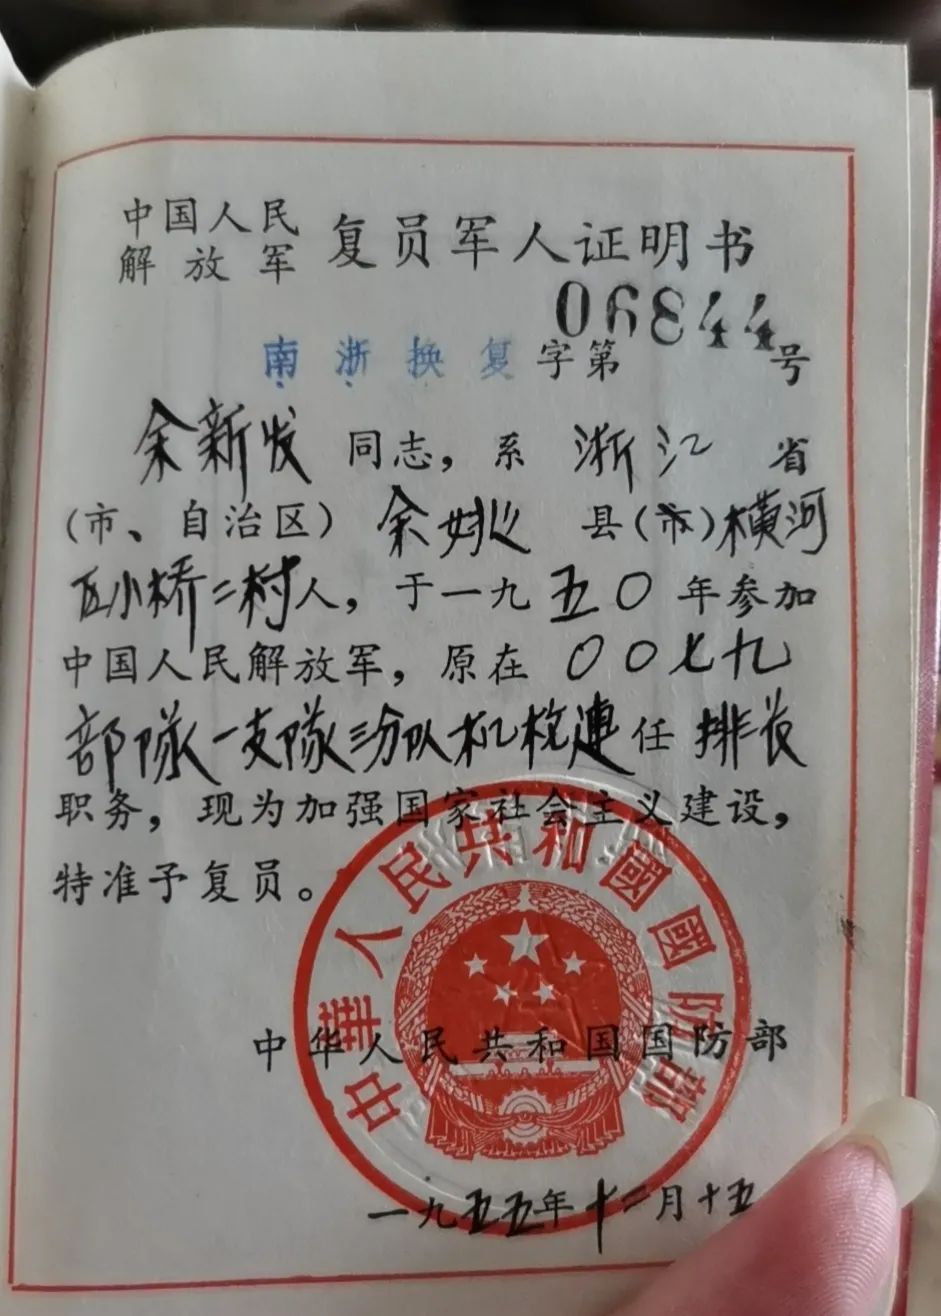 中国人民
解放军 复员军人证明书
06844
南浙换复字第 号
余新发同志，系浙江省
（市、自治区）余姚县（市）横河
区小桥二村人，于一九五〇年参加
中国人民解放军，原在〇〇七九
部队一支队三分队机枪連任排长
职务，现为加强国家社会主义建设，
特准予复员。
中華人民共和國國防部
中华人民共和国国防部
一九五五年十二月十五